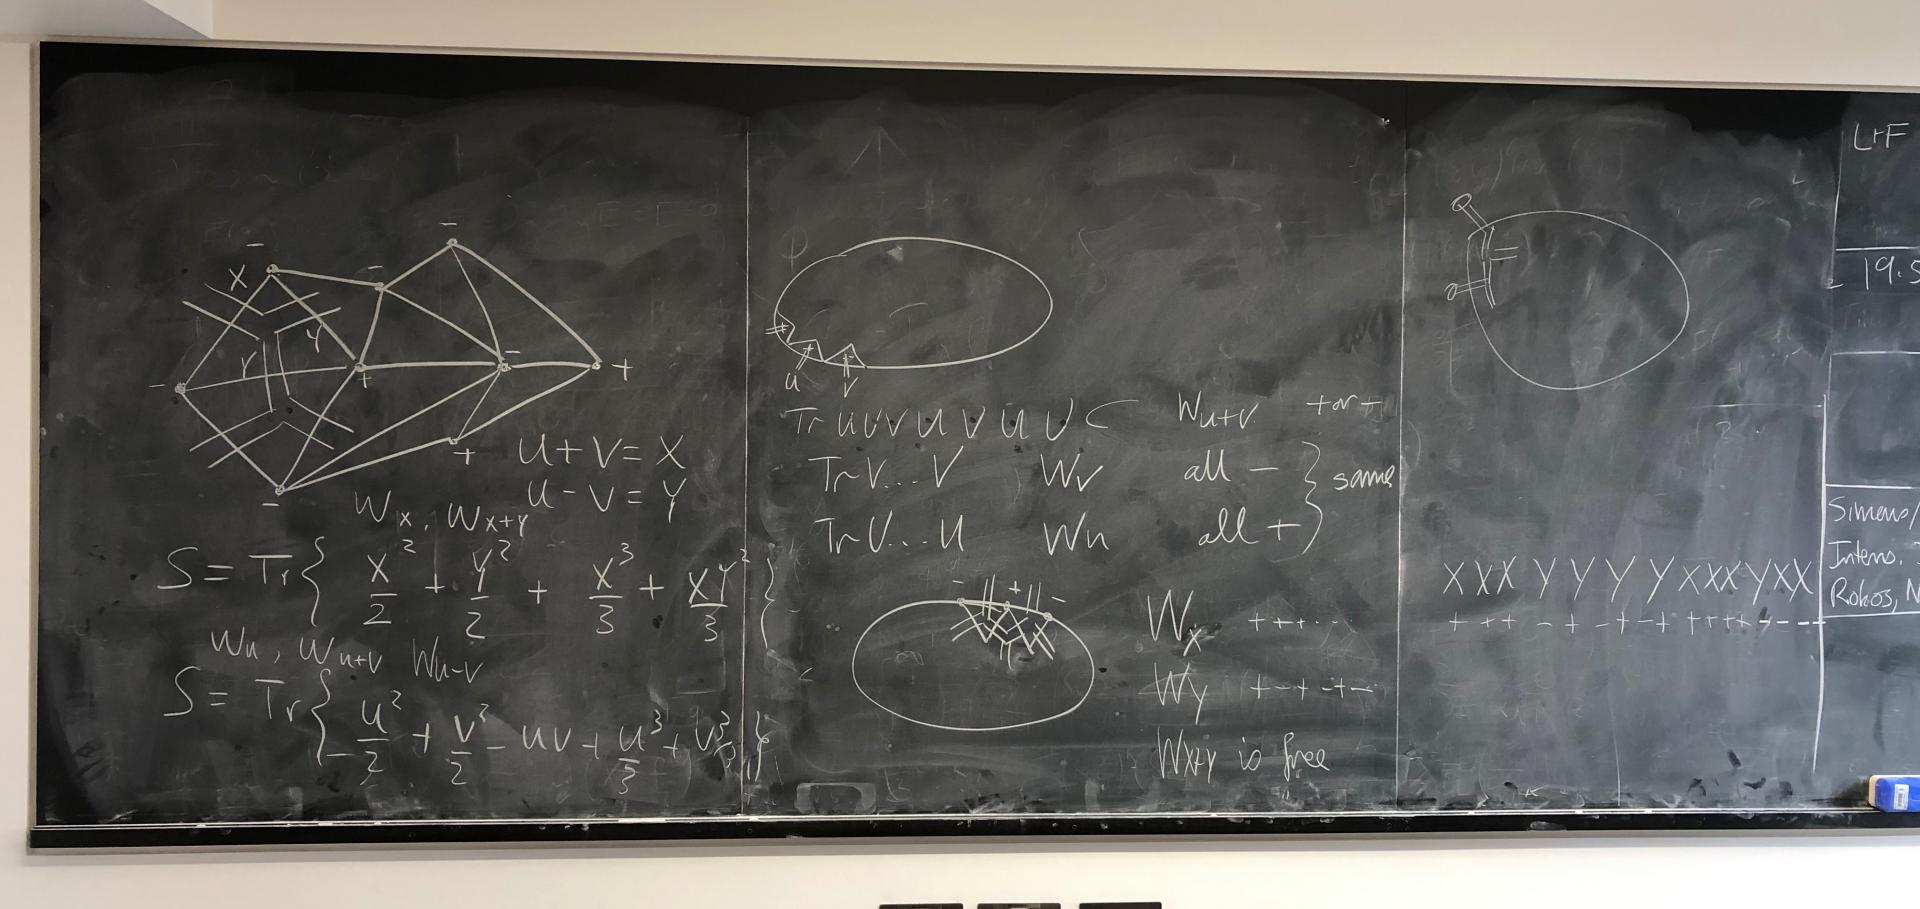 -
-
-
X
Y
Y
-
+
-
+
+
-
U + V = X
U - V = Y
W_X, W_{X+Y}
S = Tr { X²/2 + Y²/2 + X³/3 + XY²/3 }
W_u, W_{u+v} W_{u-v}
S = Tr { u²/2 + v²/2 - uv + u³/3 + v³/3 }
u
v
Tr u v v u v u v
W_{u+v} + or -
Tr V...V W_v all -
Tr U...U W_u all +
} same
- + -
W_X + + + ...
W_Y + - + - + -
W_{X+Y} is free
X X X Y Y Y Y X X X Y X X
+ + + - + - + - + + + + - - - -
L+F
19.5
Simens/
Intens.
Robos, N